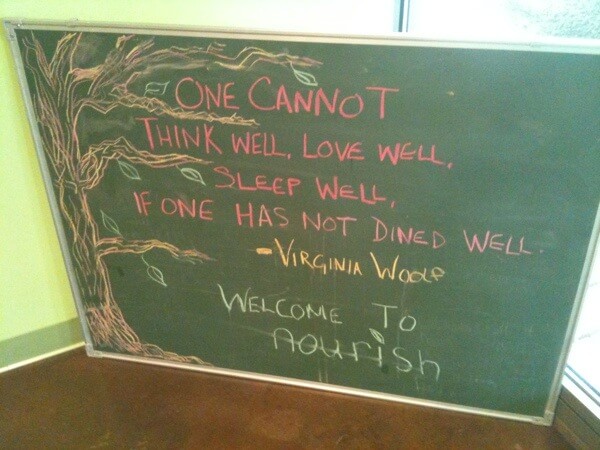 ONE CANNOT
THINK WELL, LOVE WELL,
SLEEP WELL,
IF ONE HAS NOT DINED WELL.
- VIRGINIA WOOLF
WELCOME TO
nourish